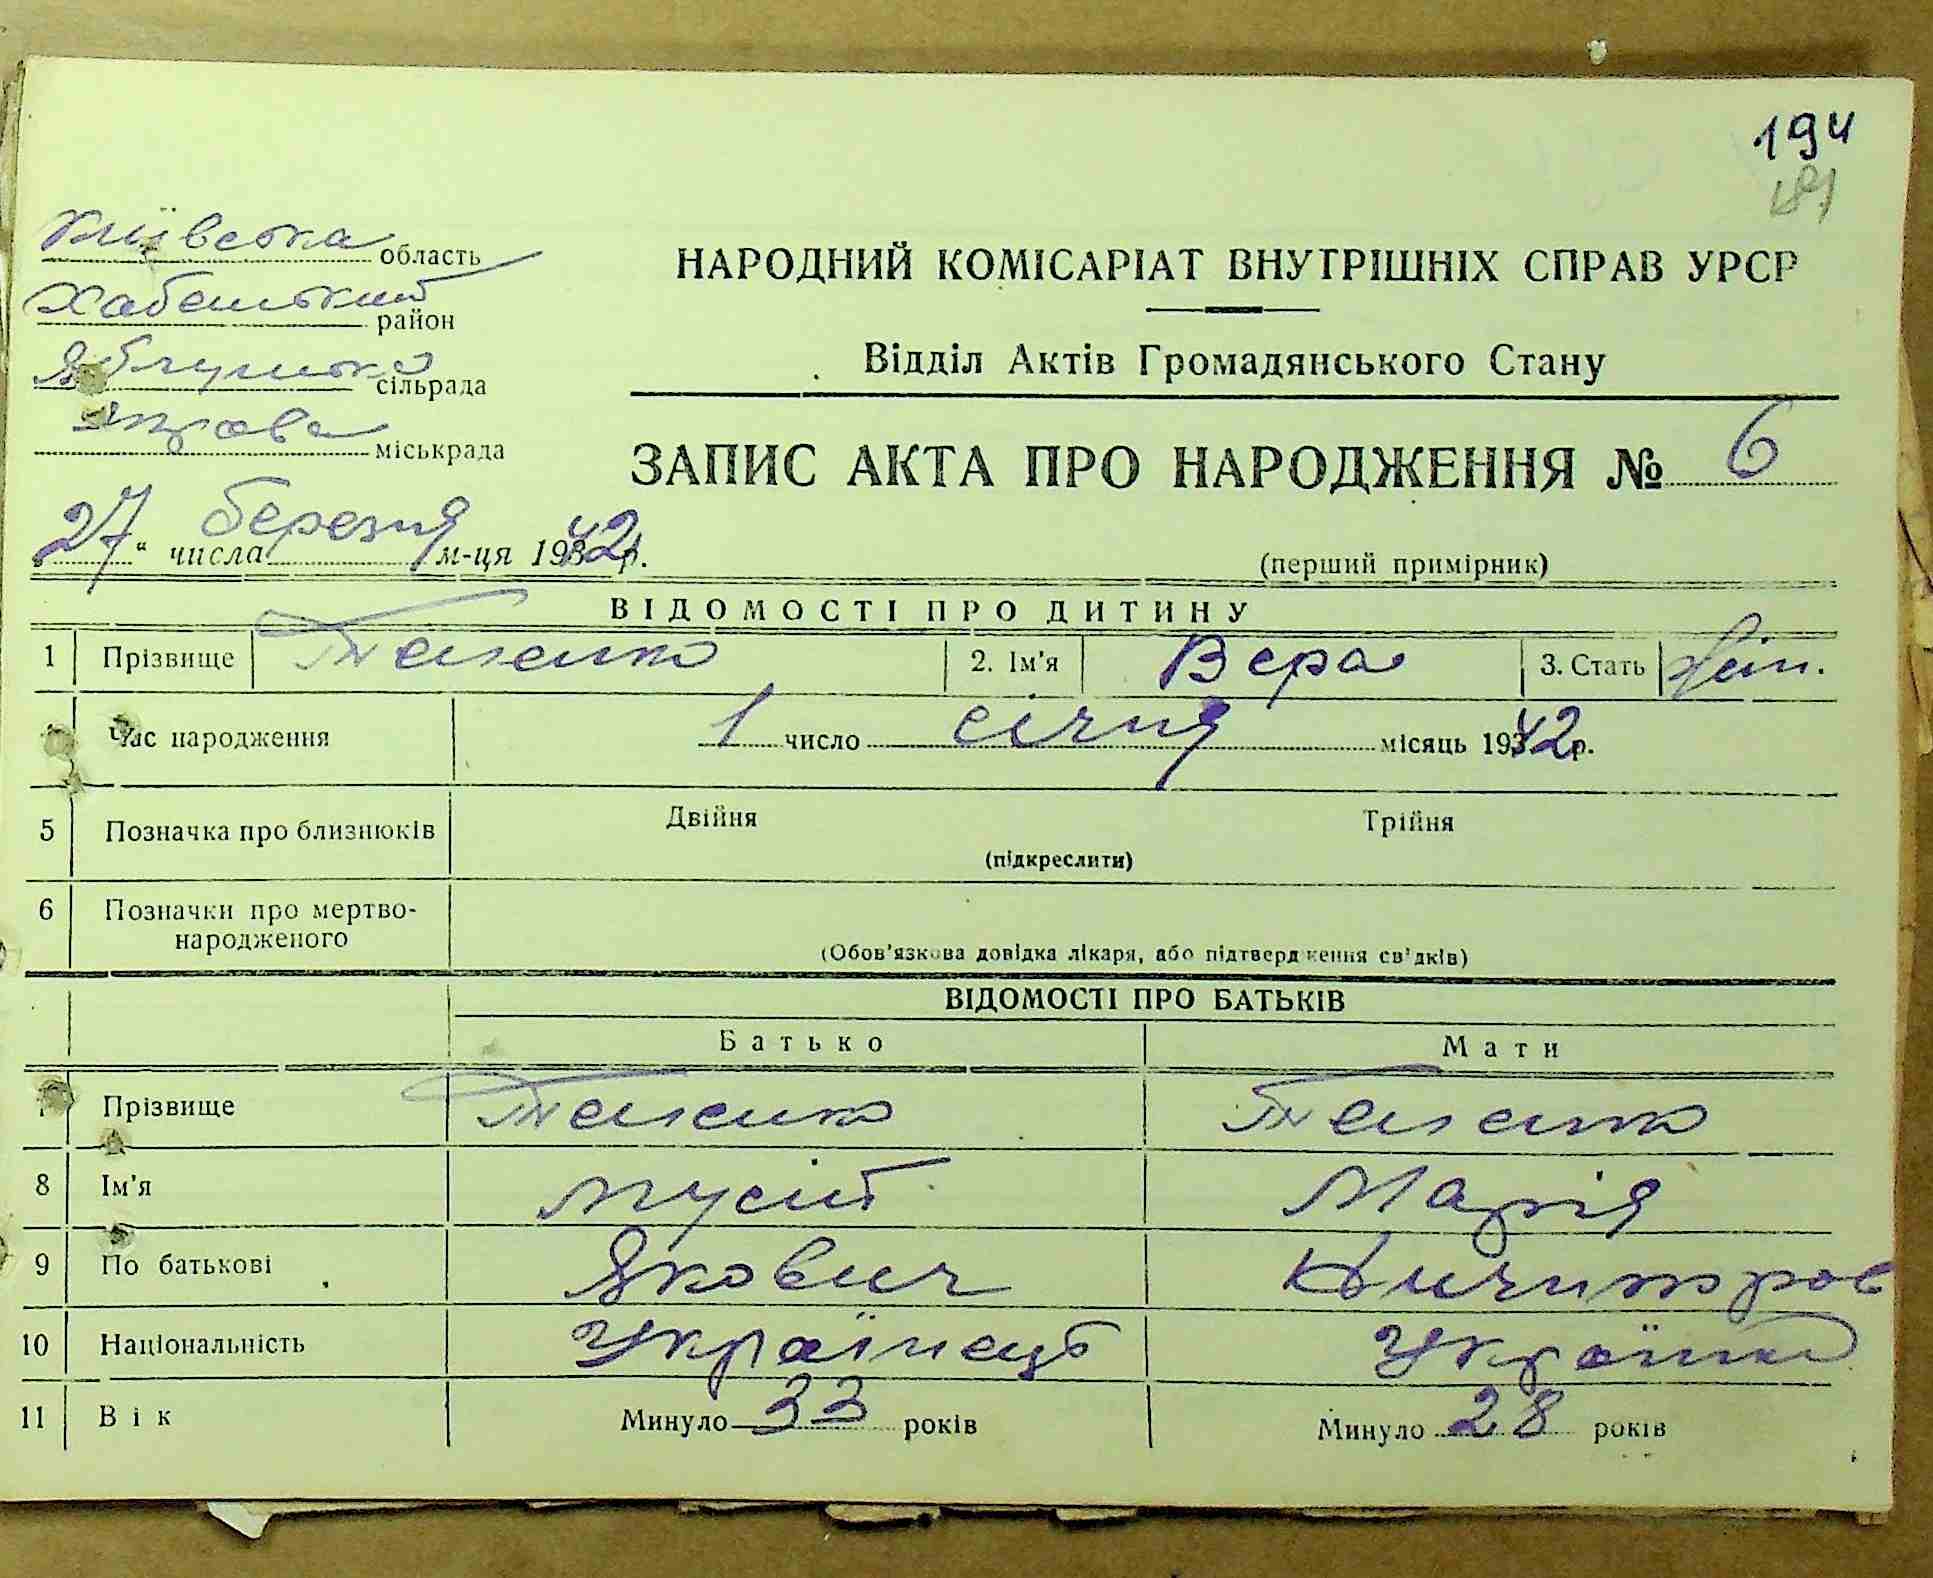 194
181
Київська область
Хабенський район
сільрада
міськрада
НАРОДНИЙ КОМІСАРІАТ ВНУТРІШНІХ СПРАВ УРСР
Відділ Актів Громадянського Стану
ЗАПИС АКТА ПРО НАРОДЖЕННЯ № 6
27 " числа березня м-ця 1942 р.
(перший примірник)
ВІДОМОСТІ ПРО ДИТИНУ
1 Прізвище 2. Ім'я Вера 3. Стать жін.
Час народження 1 число січня місяць 1942 р.
5 Позначка про близнюків Двійня Трійня
(підкреслити)
6 Позначки про мертво-
народженого
(Обов'язкова довідка лікаря, або підтвердження свідків)
ВІДОМОСТІ ПРО БАТЬКІВ
Батько Мати
7 Прізвище
8 Ім'я Мусій Марія
9 По батькові Якович Ничипоров
10 Національність Українець Українка
11 Вік Минуло 33 років Минуло 28 років